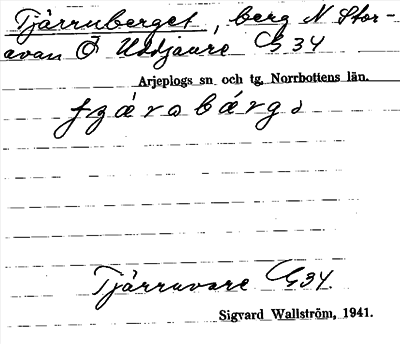 Tjärruberget, berg N Stor-
avan Ö Uddjaure G 34
Arjeplogs sn och tg, Norrbottens län.
Tjärruvare G34.
Sigvard Wallström, 1941.